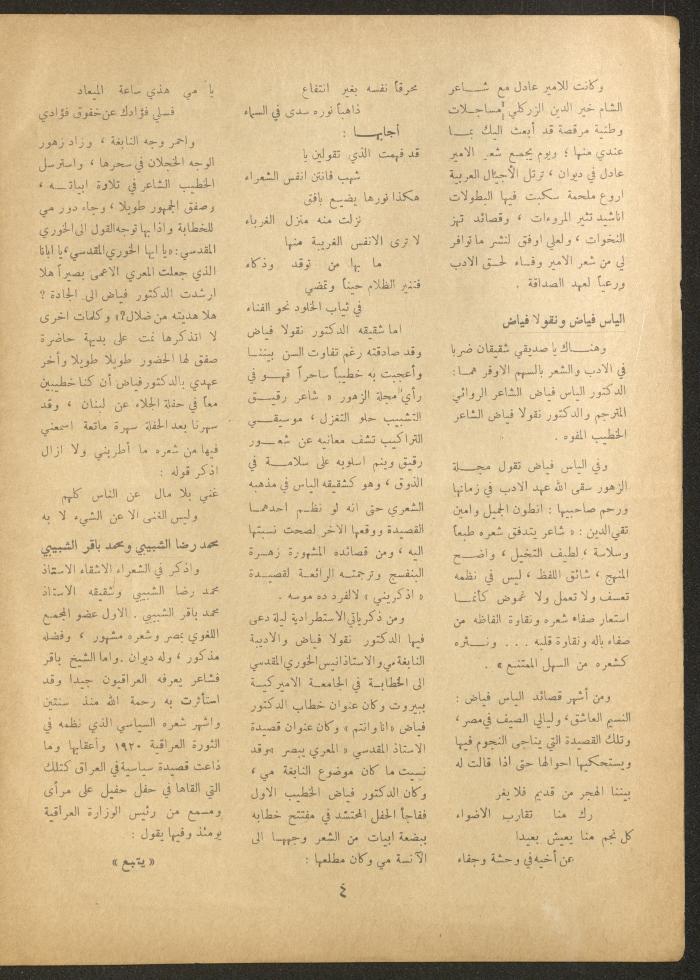 وكانت للامير عادل مع شـــاعر
الشام خير الدين الزركلي مساجـلات
وطنية مرقصة قد أبعث اليك بمـا
عندي منها ؛ ويوم يجمع شعر الامير
عادل في ديوان ، ترتل الأجيال العربية
اروع ملحمة سكبت فيها البطولات
اناشيد تثير المروءات ، وقصائد تهز
النخوات ، ولعلي اوفق لنشر ما توافر
لي من شعر الامير وفـاء لحـق الادب
ورعياً لعهد الصداقة .
الياس فياض ونقولا فياض
وهنـاك يا صديقي شقيقان ضربا
في الادب والشعر بالسهم الاوفر همـا :
الدكتور الياس فياض الشاعر الروائي
المترجم والدكتور نقولا فياض الشاعر
الخطيب المفوه .
وفي الياس فياض تقول مجـلة
الزهور سقى الله عهد الادب في زمانها
ورحم صاحبيها : انطون الجميل وامين
تقي الدين : « شاعر يتدفق شعره طبعاً
وسلاسة ، لطيف التخيل ، واضـح
المنهج ، شائق اللفظ ، ليس في نظمه
تعسف ولا تعمل ولا غموض كأنمـا
استعار صفاء شعره ونقاوة الفاظه من
صفاء باله ونقاوة قلبه . . . ونــثره
كشعره من السهل الممتنع » .
ومن أشهر قصائد الياس فياض :
النسيم العاشق ، وليالي الصيف في مصر ،
وتلك القصيدة التي يناجي النجوم فيها
ويستحكيها احوالها حتى اذا قالت له
بيننا الهجر من قديم فلا يغر
رك منا تقارب الاضواء
كل نجم منا يعيش بعيدا
عن أخيه في وحشة وجفاء
محرقاً نفسه بغير انتفاع
ذاهباً نوره سدى في السماء
أجابهـا :
قد فهمت الذي تقولين يا
شهب فاتن انفس الشعراء
هكذا نورها يضيـع بافق
نزلت منه منزل الغرباء
لا ترى الانفس الغريبة منها
ما بها من توقد وذكاء
فتنير الظلام حيناً وتمضي
في ثياب الخلود نحو الفناء
اما شقيقه الدكتور نقولا فياض
وقد صادقته رغم تفاوت السن بيننـا
وأعجبت به خطيباً ساحراً فهــو في
رأي مجلة الزهور « شاعر رقيــق
التشبيب حلو التغزل ، موسيقــي
التراكيب تشف معانيه عن شعــور
رقيق وينم اسلوبه على سلامـــة في
الذوق ، وهو كشقيقه الياس في مذهبه
الشعري حتى انه لو نظــم احدهمـا
القصيدة ووقعها الاخر لصحت نسبتها
اليه ، ومن قصائده المشهورة زهــرة
البنفسج وترجمتــه الرائعـة لقصيــدة
« اذكريني » لالفرد ده موسه .
ومن ذكرياتي الاستطرادية ليلة دعى
فيها الدكتور نقولا فياض والاديبة
النابغة مي والاستاذ انيس الخوري المقدسي
الى الخطابـة في الجامعـة الاميركيـة
بيروت وكان عنوان خطاب الدكتور
فياض « انا وانتم » وكان عنوان قصيدة
الاستاذ المقدسي « المعري يبصر » وقد
نسيت ما كان موضوع النابغة مي ،
وكان الدكتور فياض الخطيب الاول
ففاجأ الحفل المحتشد في مفتتح خطابه
ببضعة ابيات من الشعر وجههـا الى
الآنسة مي وكان مطلعها :
يا مي هذي ساعة الميعاد
فسلي فؤادك عن خفوق فؤادي
واحمر وجه النابغة ، وزاد زهور
الوجه الخجلان في سحرها ، واسترسل
الخطيب الشاعر في تلاوة ابياتــه ،
وصفق الجمهور طويلا ، وجاء دور مي
للخطابة واذا بها توجه القول الى الخوري
المقدسي : « يا ايها الخوري المقدسي ، يا ابانا
الذي جعلت المعري الاعمى بصيراً هلا
ارشدت الدكتور فياض الى الجادة ؟
هلا هديته من ضلال ؟ » وكلمات اخرى
لا اتذكرها نمت على بديهة حاضرة
صفق لها الحضور طويلا طويلا وآخر
عهدي بالدكتور فياض أن كنا خطيبين
معاً في حفلة الجلاء عن لبنان ، وقد
سهرنا بعد الحفلة سهرة ماتعة اسمعني
فيها من شعره ما أطربني ولا ازال
اذكر قوله :
غني بلا مال عن الناس كلهم
وليس الغنى الا عن الشيء لا به
محمد رضا الشبيبي ومحمد باقر الشبيبي
واذكر في الشعراء الاشقاء الاستاذ
محمد رضا الشبيبي وشقيقه الاستاذ
محمد باقر الشبيبي . الاول عضو المجمع
اللغوي بمصر وشعره مشهور ، وفضله
مذكور ، وله ديوان . واما الشيخ باقر
فشاعر يعرفه العراقيون جيدا وقد
استأثرت به رحمة الله منذ سنتين
واشهر شعره السياسي الذي نظمه في
الثورة العراقية ١٩٢٠ وأعقابها وما
ذاعت قصيدة سياسية في العراق كتلك
التي القاها في حفل حفيل على مرأى
ومسمع من رئيس الوزارة العراقية
يومئذ وفيها يقول :
« يتبع »
٤